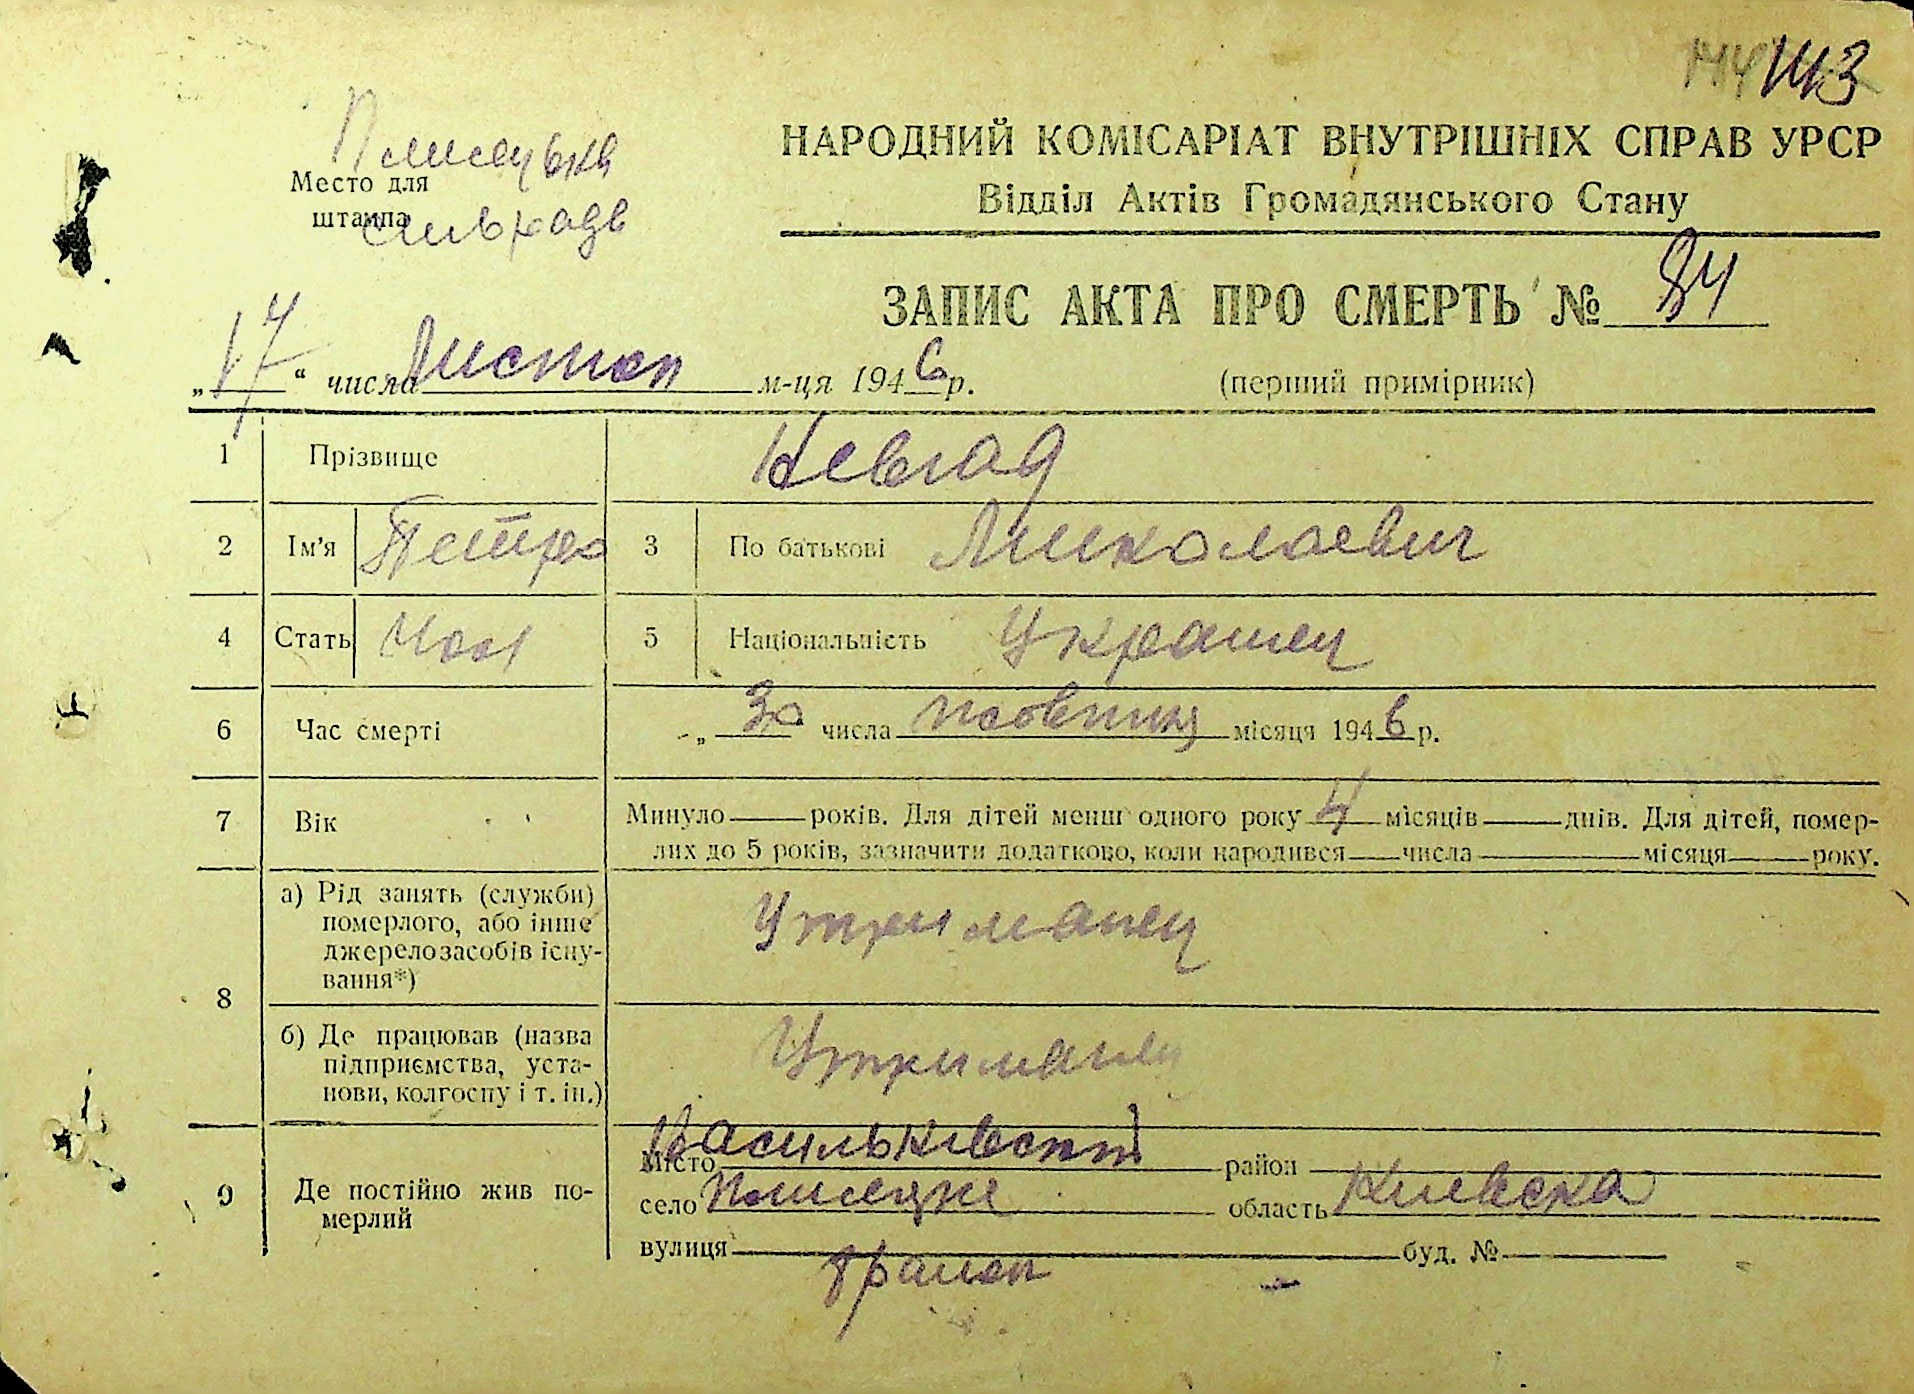 143
Плисецька
Место для
штампа
сільрада
НАРОДНИЙ КОМІСАРІАТ ВНУТРІШНІХ СПРАВ УРСР
Відділ Актів Громадянського Стану
ЗАПИС АКТА ПРО СМЕРТЬ № 84
„17“ числа Листоп м-ця 1946 р.
(перший примірник)
1 Прізвище
2 Ім'я Петро 3 По батькові Миколаевич
4 Стать Чол 5 Національність Украинец
6 Час смерті „30 числа жовтня місяця 1946 р.
7 Вік Минуло років. Для дітей менш одного року 4 місяців днів. Для дітей, помер-
лих до 5 років, зазначити додатково, коли народився числа місяця року.
8 а) Рід занять (служби)
померлого, або інше
джерело засобів існу-
вання*)
Утриманец
б) Де працював (назва
підприємства, уста-
нови, колгоспу і т. ін.)
Утриманец
9 Де постійно жив по-
мерлий
Васильківский
місто район
село Плисецке область Киевска
вулиця буд. №